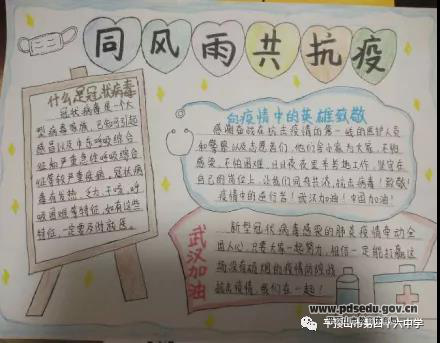 同风雨共抗疫
什么是冠状病毒
冠状病毒是一个大
型病毒家族，已知可引起
感冒以及中东呼吸综合
征和严重急性呼吸综合
征等较严重疾病，冠状病
毒有发热、乏力、干咳、呼
吸困难等特征，如有这些
特征，一定要及时就医。
向疫情中的英雄致敬
感谢奋战在抗击疫情的第一线的医护人员
和警察，以及志愿者们，他们舍小家为大家，不怕
感染，不怕困难，日日夜夜坚守
自己的岗位上，让我们同舟共济，抗击病毒！致敬！
疫情中的逆行者！武汉加油！中国加油！
武汉加油
新型冠状病毒感染的肺炎疫情牵动全
国人心，只要大家一起努力，相信一定能打赢这
场没有硝烟的疫情防控战
抗击疫情，我们在一起！
www.pdsedu.gov.cn
平顶山市教育体育局
平顶山市第四十六中学